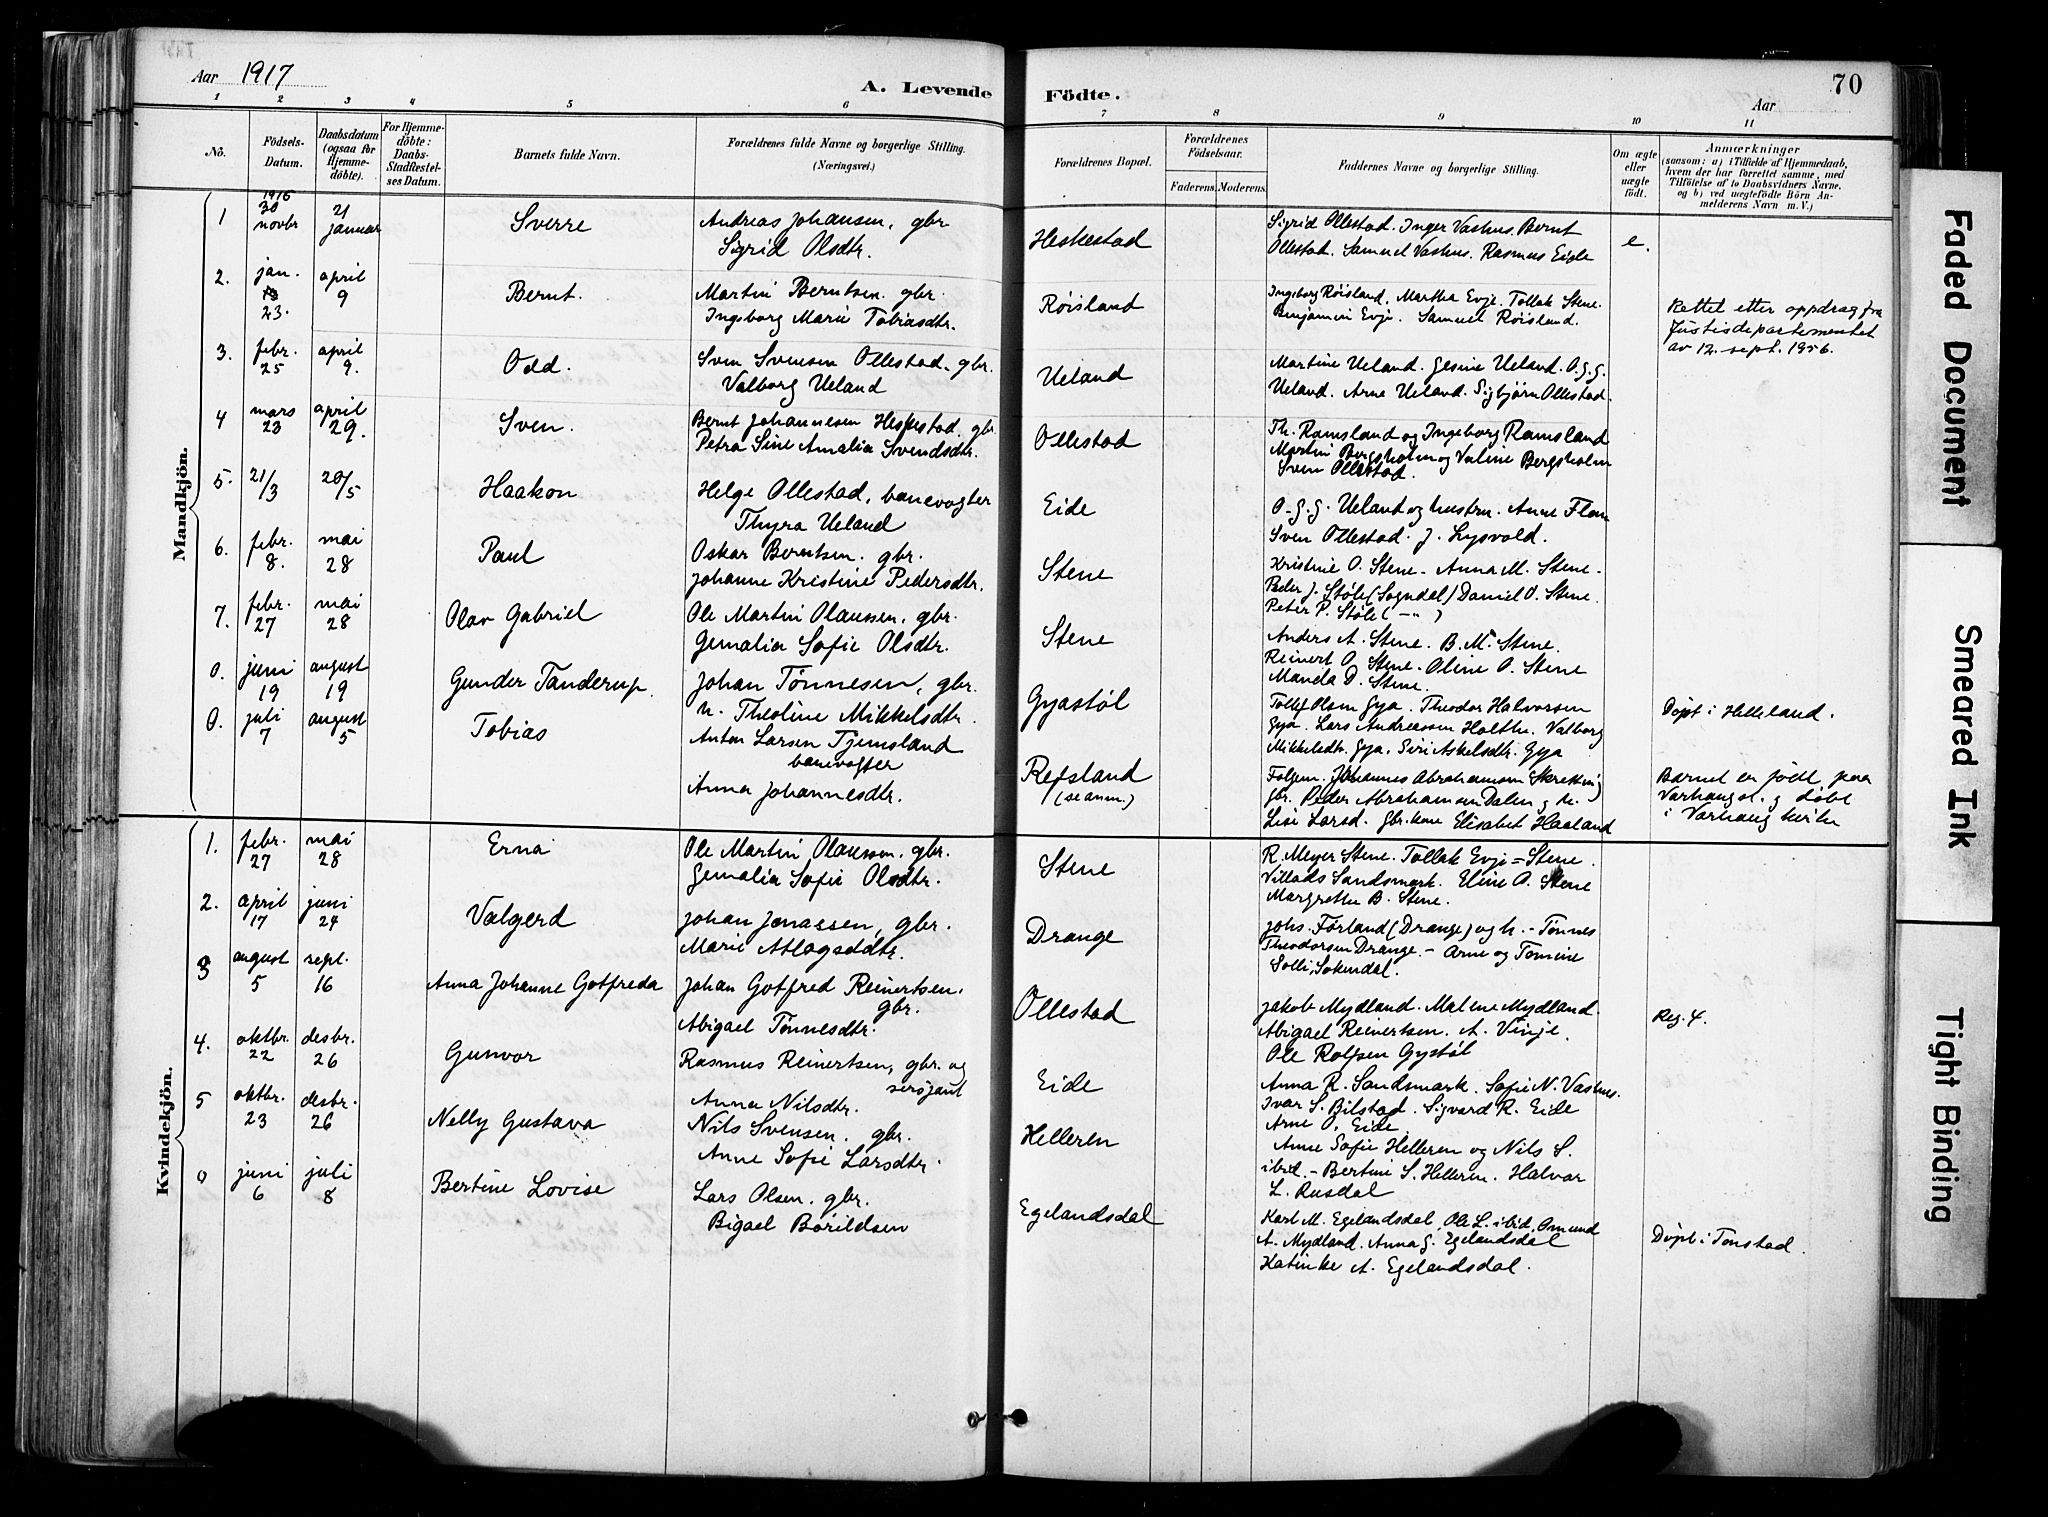 Aar 1917
A. Levende Födte.
Aar
70
1 2 3 4 5 6 7 8 9 10 11
Nö.
Födsels-Datum.
Daabsdatum (ogsaa for Hjemme-döbte).
For Hjemme-döbte: Daabs-Stadfæstel-ses Datum.
Barnets fulde Navn.
Forældrenes fulde Navne og borgerlige Stilling. (Næringsvei.)
Forældrenes Bopæl.
Forældrenes Födselsaar.
Faderens. Moderens.
Faddernes Navne og borgerlige Stilling.
Om ægte eller uægte födt.
Anmærkninger
(saasom: a) i Tilfælde af Hjemmedaab,
hvem der har forrettet samme, med
Tilföielse af to Daabsvidners Navne,
og b) ved uægtefödte Börn An-
melderens Navn m. V.)
Mandkjön.
1 1916 30 novbr 21 januar Sverre Andreas Johansen, gbr Sigrid Olsdtr. Heskestad
Sigrid Ollestad. Inger Vashus. Bernt
Ollestad. Samuel Vashus. Rasmus Eide
e.
2. jan. 23. april 9 Bernt. Martin Berntsen. gbr. Ingeborg Marie Tobiasdtr. Røisland
Ingeborg Røisland. Martha Evje. Tollak Stene.
Benjamin Evje. Samuel Røisland.
Rettet etter oppdrag fra
Justisdepartementet
av 12. sept. 1956.
3. febr. 25 april 9. Odd. Sven Svensen Ollestad. gbr. Valborg Ueland Ueland
Martine Ueland. Gesine Ueland. O.G.G.
Ueland. Arne Ueland. Sigbjørn Ollestad.
4 mars 23 april 29. Sven. Bernt Johannesen Heskestad. gbr. Petra Sine Amalia Svendsdtr. Ollestad
Th. Ramsland og Ingeborg Ramsland
Martin Bergsholm og Valine Bergsholm
Sven Ollestad.
5. 21/3 20/5 Haakon Helge Ollestad, banevogter Thyra Ueland Eide
O. G. G. Ueland og hustru. Anne Flom
Sven Ollestad. J. Lysvold.
6. febr. 8. mai 28 Paul Oskar Berntsen. gbr. Johanne Kristine Pedersdtr. Stene
Kristine O. Stene. Anna M. Stene.
Peder J. Støle (Sogndal) Daniel O. Stene.
Peter P. Støle ( -"- )
7. febr. 27 mai 28 Olav Gabriel Ole Martin Olaussen. gbr. Gemalia Sofie Olsdtr. Stene
Anders A. Stene. B. M. Stene.
Reinert O. Stene. Oline O. Stene
Manda D. Stene.
0. juni 19 august 19 Gunder Tanderup. Johan Tønnesen, gbr. h. Theoline Mikkelsdtr. Gyastøl
Tollef Olsen Gya. Theodor Halvorsen
Gya. Lars Andreassen Holthe. Valborg
Mikkelsdtr. Gya. Siri Askelsdtr. Gya
Døpt i Helleland.
0. juli 7 august 5 Tobias Anton Larsen Tjemsland banevogter Anna Johannesdtr. Refsland (se anm.)
Johannes Abrahamsen Skretting
gbr. Peder Abrahamsen Dalen
Lise Larsd. gbr. kone Elisabet Haaland
Barnet er født paa
Varhaug st. og døbt
i Varhaug kirke
Kvindekjön.
1. febr. 27 mai 28 Erna Ole Martin Olaussen. gbr. Gemalia Sofie Olsdtr. Stene
R. Meyer Stene. Tollak Evje = Stene.
Villads Sandsmark. Eline O. Stene
Margrethe B. Stene.
2. april 17 juni 24 Valgerd Johan Jonassen, gbr. Marie Atlagsdtr. Drange
Johs. Førland (Drange) og h. - Tønnes
Theodorsen Drange. - Arne og Tomine
Solli, Sokndal.
3 august 5 sept. 16 Anna Johanne Gotfreda Johan Gotfred Reinertsen. gbr. Abigael Tønnesdtr. Ollestad
Jakob Mydland. Malene Mydland.
Abigael Reinertsen. A. Vinje.
Ole Rolfsen Gystøl
Reg. 4.
4. oktbr. 22 desbr. 26 Gunvor Rasmus Reinertsen, gbr. og sersjant Anna Nilsdtr. Eide
Anna R. Sandsmark. Sofie N. Vashus.
Ivar S. Bilstad. Sigvard R. Eide
Arne O. Eide
5 oktbr. 23 desbr. 26 Nelly Gustava Nils Svensen. gbr. Anne Sofie Larsdtr. Helleren
Anne Sofie Helleren og Nils S.
ibid. - Bertine S. Helleren. Halvar
L. Rusdal
0 juni 6 juli 8 Bertine Lovise Lars Olsen. gbr. Bigael Borildsen Egelandsdal
Karl M. Egelandsdal. Ole L. ibid. Omund
A. Mydland. Anna G. Egelandsdal
Katinke A. Egelandsdal.
Døpt i Tonstad.
Faded Document
Smeared Ink
Tight Binding